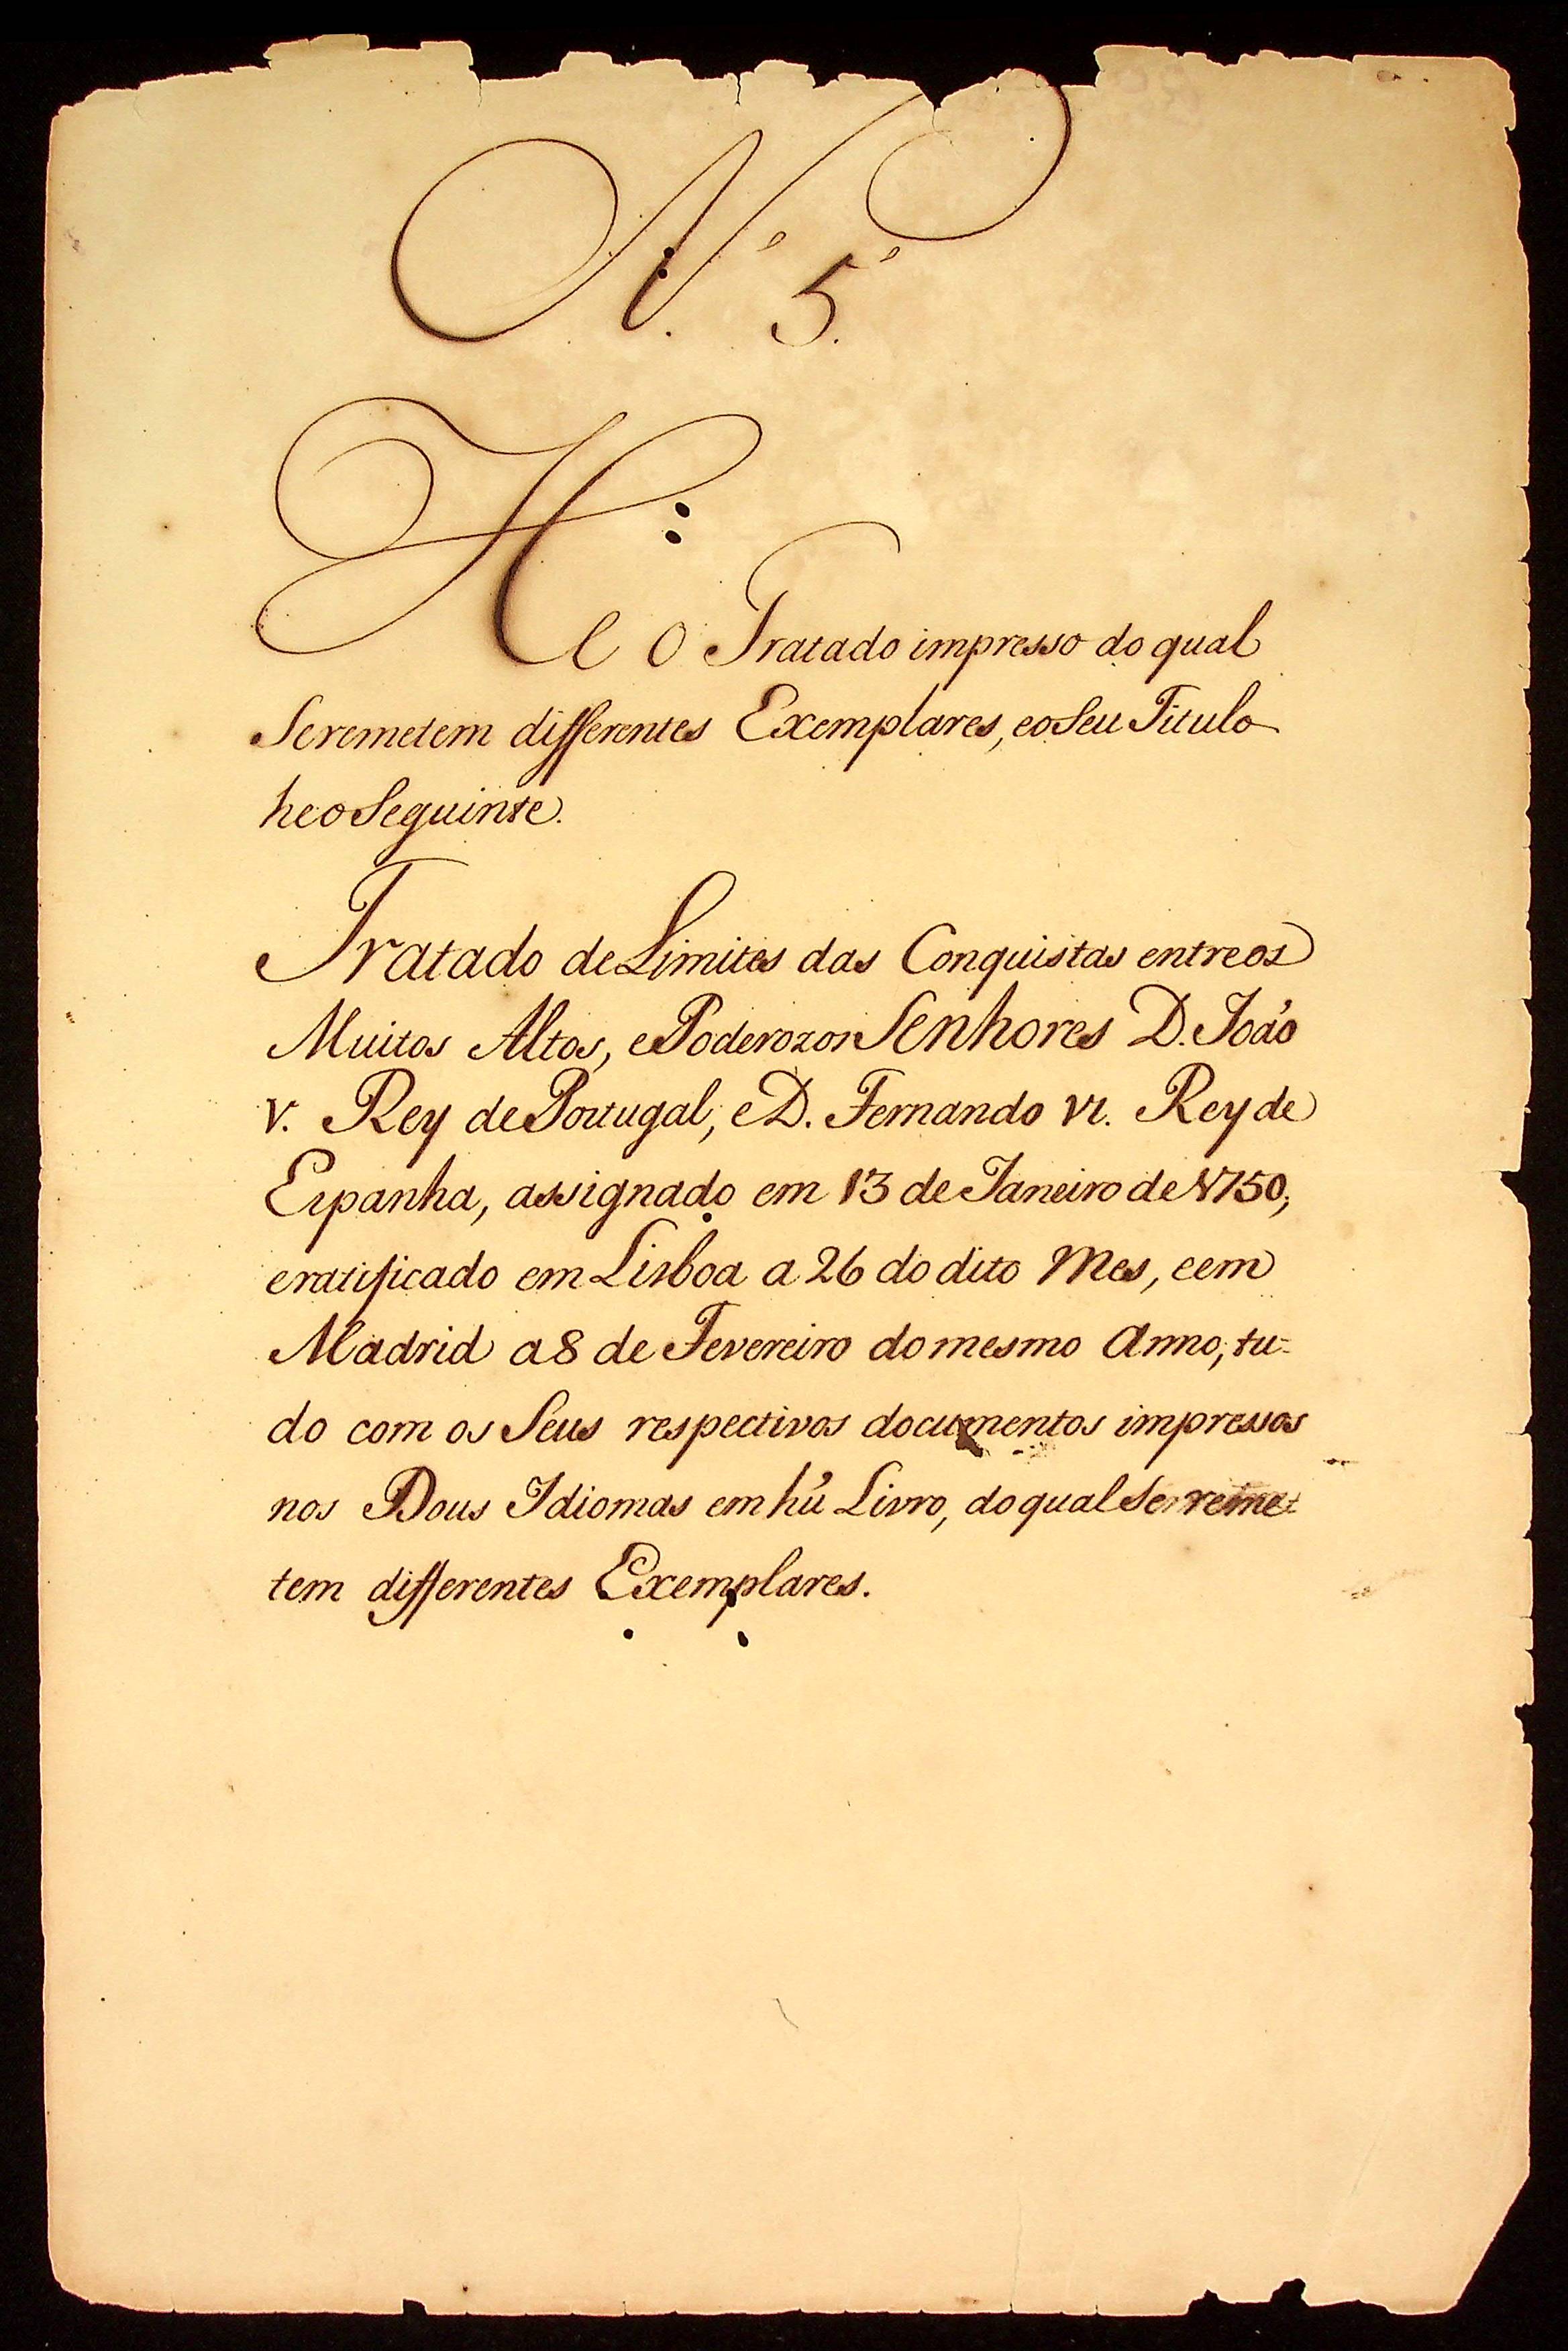 N.º 5.º
He o Tratado impresso do qual
Se remetem differentes Exemplares, e o Seu Titulo
he o Seguinte.
Tratado de Limites das Conquistas entre os
Muitos Altos, e Poderozos Senhores D. João
V. Rey de Portugal, e D. Fernando VI. Rey de
Espanha, assignado em 13 de Janeiro de 1750,
e ratificado em Lisboa a 26 do dito Mes, e em
Madrid a 8 de Fevereiro do mesmo Anno; tu-
do com os Seus respectivos documentos impressos
nos Dous Idiomas em hũ Livro, do qual Se reme-
tem differentes Exemplares.